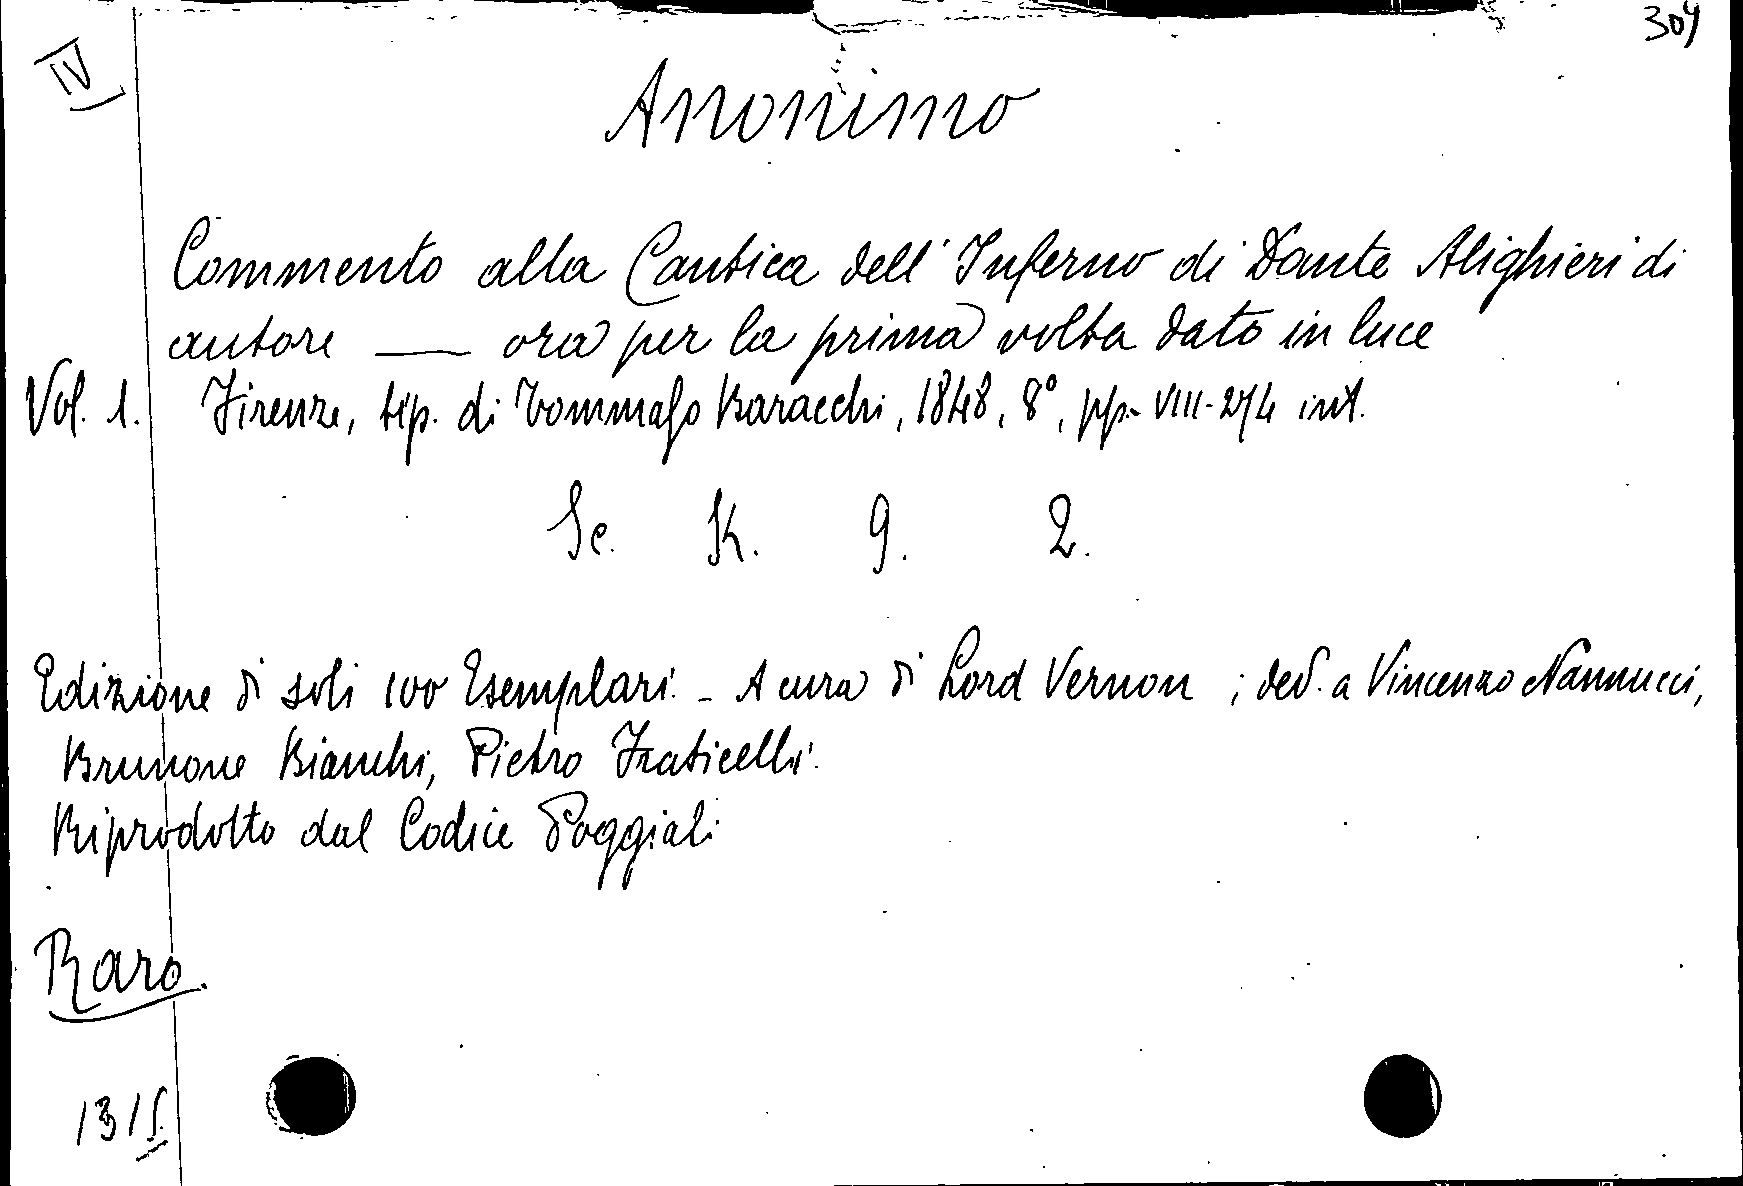 304
IV
Anonimo
Commento alla Cantica dell'Inferno di Dante Alighieri di
autore ___ ora per la prima volta dato in luce
Vol. 1. Firenze, tip. di Tommaso Baracchi, 1848, 8°, pp. VIII-274 int.
Sc. K. 9. 2.
Edizione di soli 100 Esemplari. - A cura di Lord Vernon ; ded. a Vincenzo Nannucci,
Brunone Bianchi, Pietro Fraticelli.
Riprodotto dal Codice Poggiali
Raro.